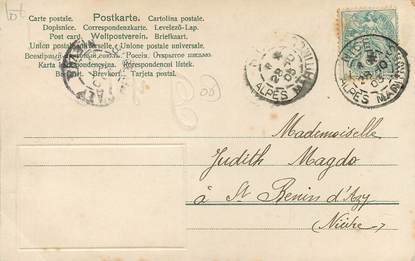 Carte postale. Postkarte. Cartolina postale.
Dopisnice. Correspondenzkarte. Levelező-Lap.
Post card. Weltpostverein. Briefkaart.
Union postale universelle. Unione postale universale.
Всемірный почтовый союзъ. Россія. Открытое письмо
Karta korespondencyjna. Korespondenčni listek.
Brefkort. Brevkort. Tarjeta postal.
ALPES MARITIMES
ALPES MARITIMES
Mademoiselle
Judith Magdo
à St Benin d'Azy
Nièvre